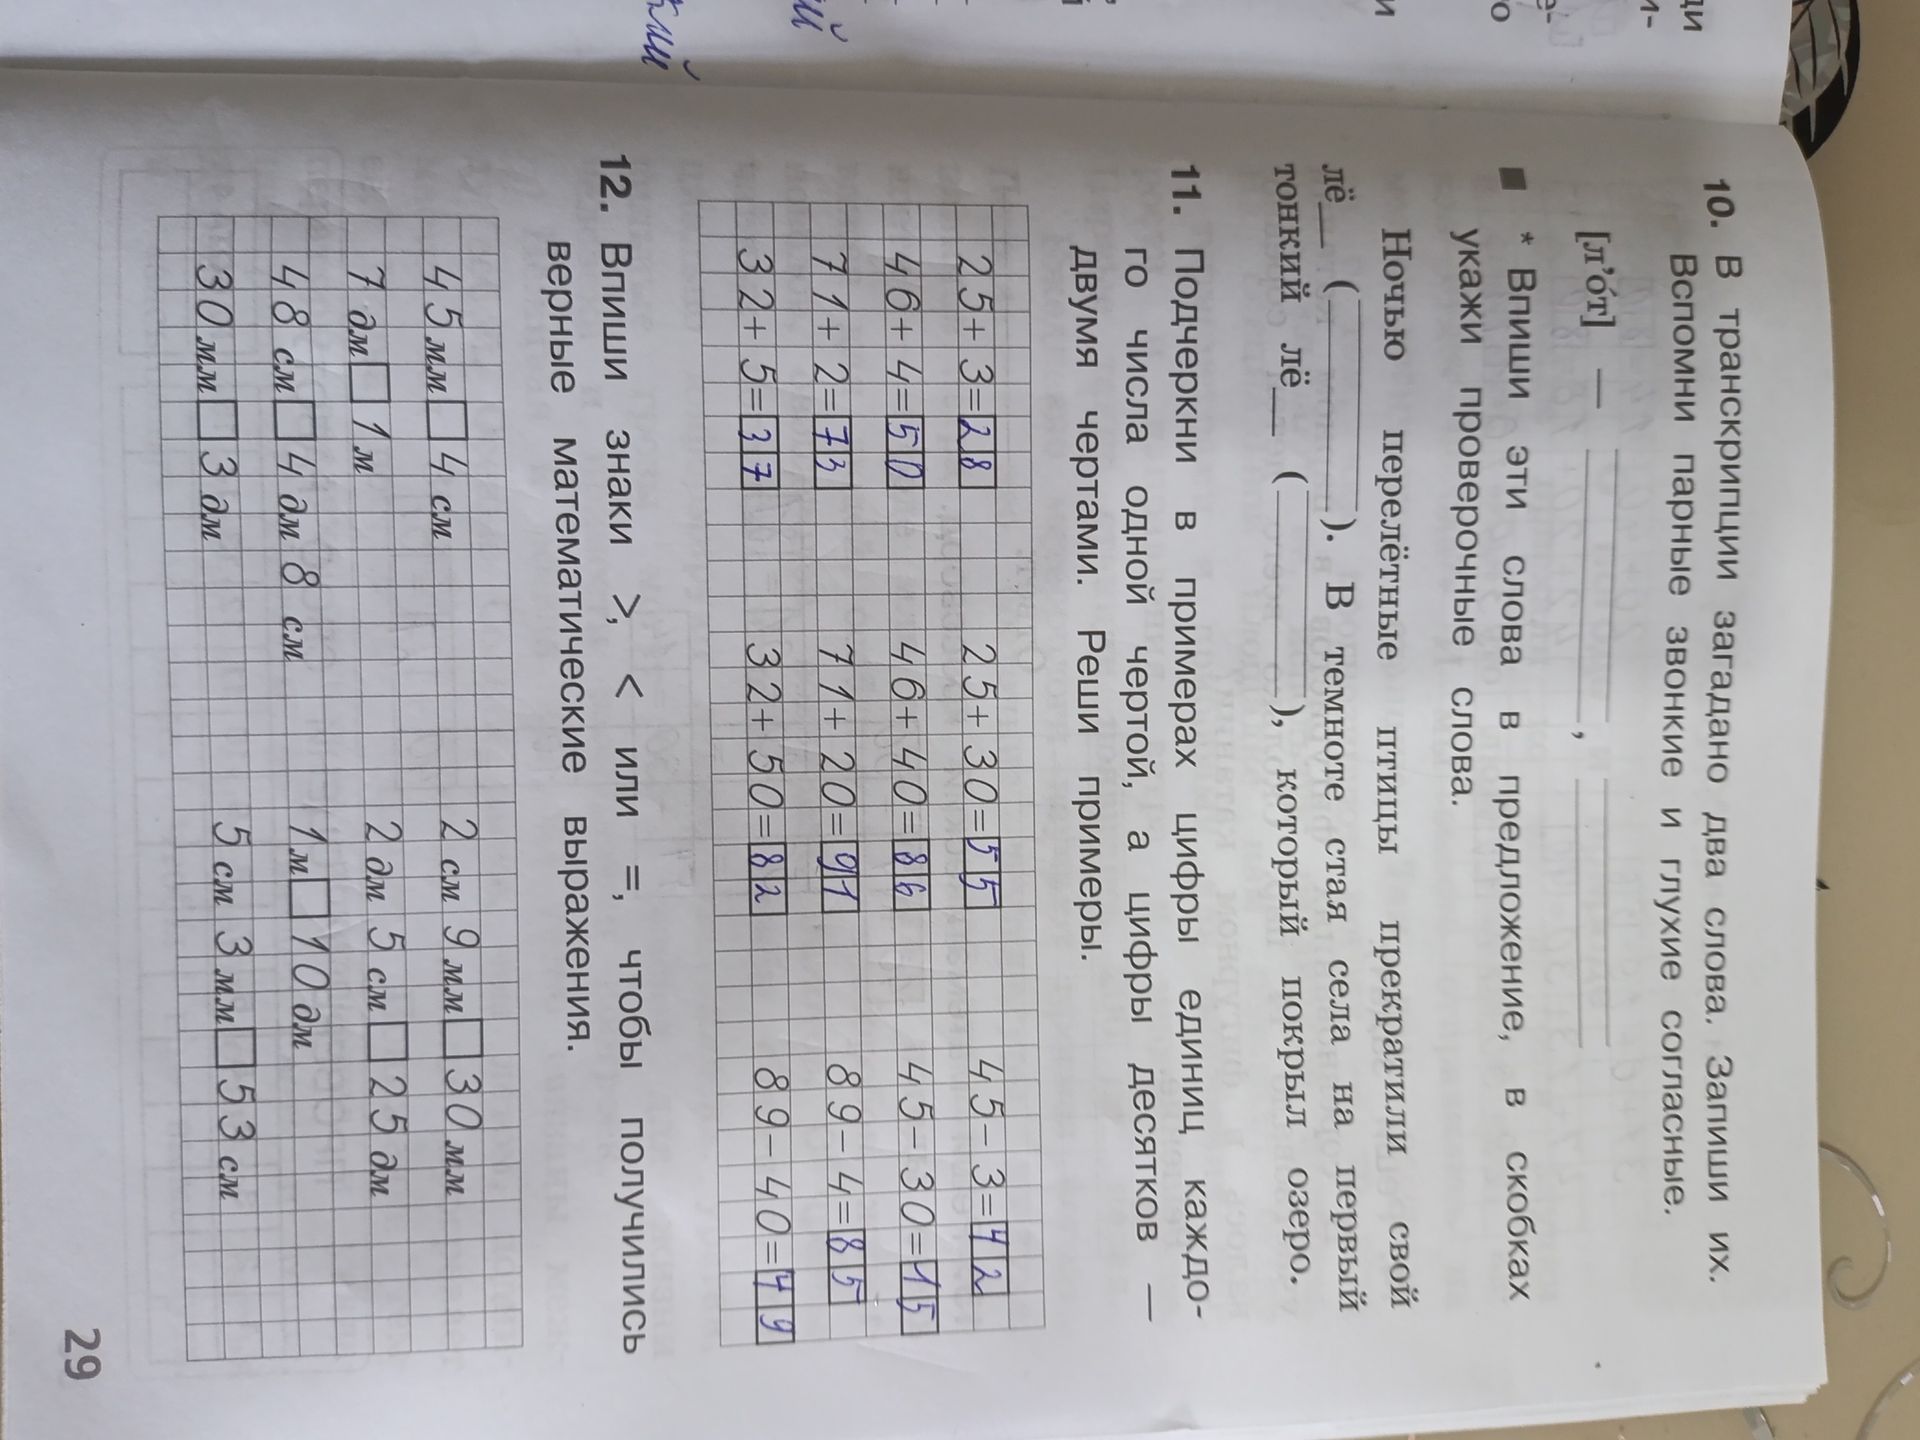 10. В транскрипции загадано два слова. Запиши их.
Вспомни парные звонкие и глухие согласные.
[л’о́т] — ____________, ____________
* Впиши эти слова в предложение, в скобках
укажи проверочные слова.
Ночью перелётные птицы прекратили свой
лё__ (____________). В темноте стая села на первый
тонкий лё__ (____________), который покрыл озеро.
11. Подчеркни в примерах цифры единиц каждо-
го числа одной чертой, а цифры десятков —
двумя чертами. Реши примеры.
25+3=28 25+30=55 45-3=42
46+4=50 46+40=86 45-30=15
71+2=73 71+20=91 89-4=85
32+5=37 32+50=82 89-40=49
12. Впиши знаки >, < или =, чтобы получились
верные математические выражения.
45 мм □ 4 см 2 см 9 мм □ 30 мм
7 дм □ 1 м 2 дм 5 см □ 25 дм
48 см □ 4 дм 8 см 1 м □ 10 дм
30 мм □ 3 дм 5 см 3 мм □ 53 см
29